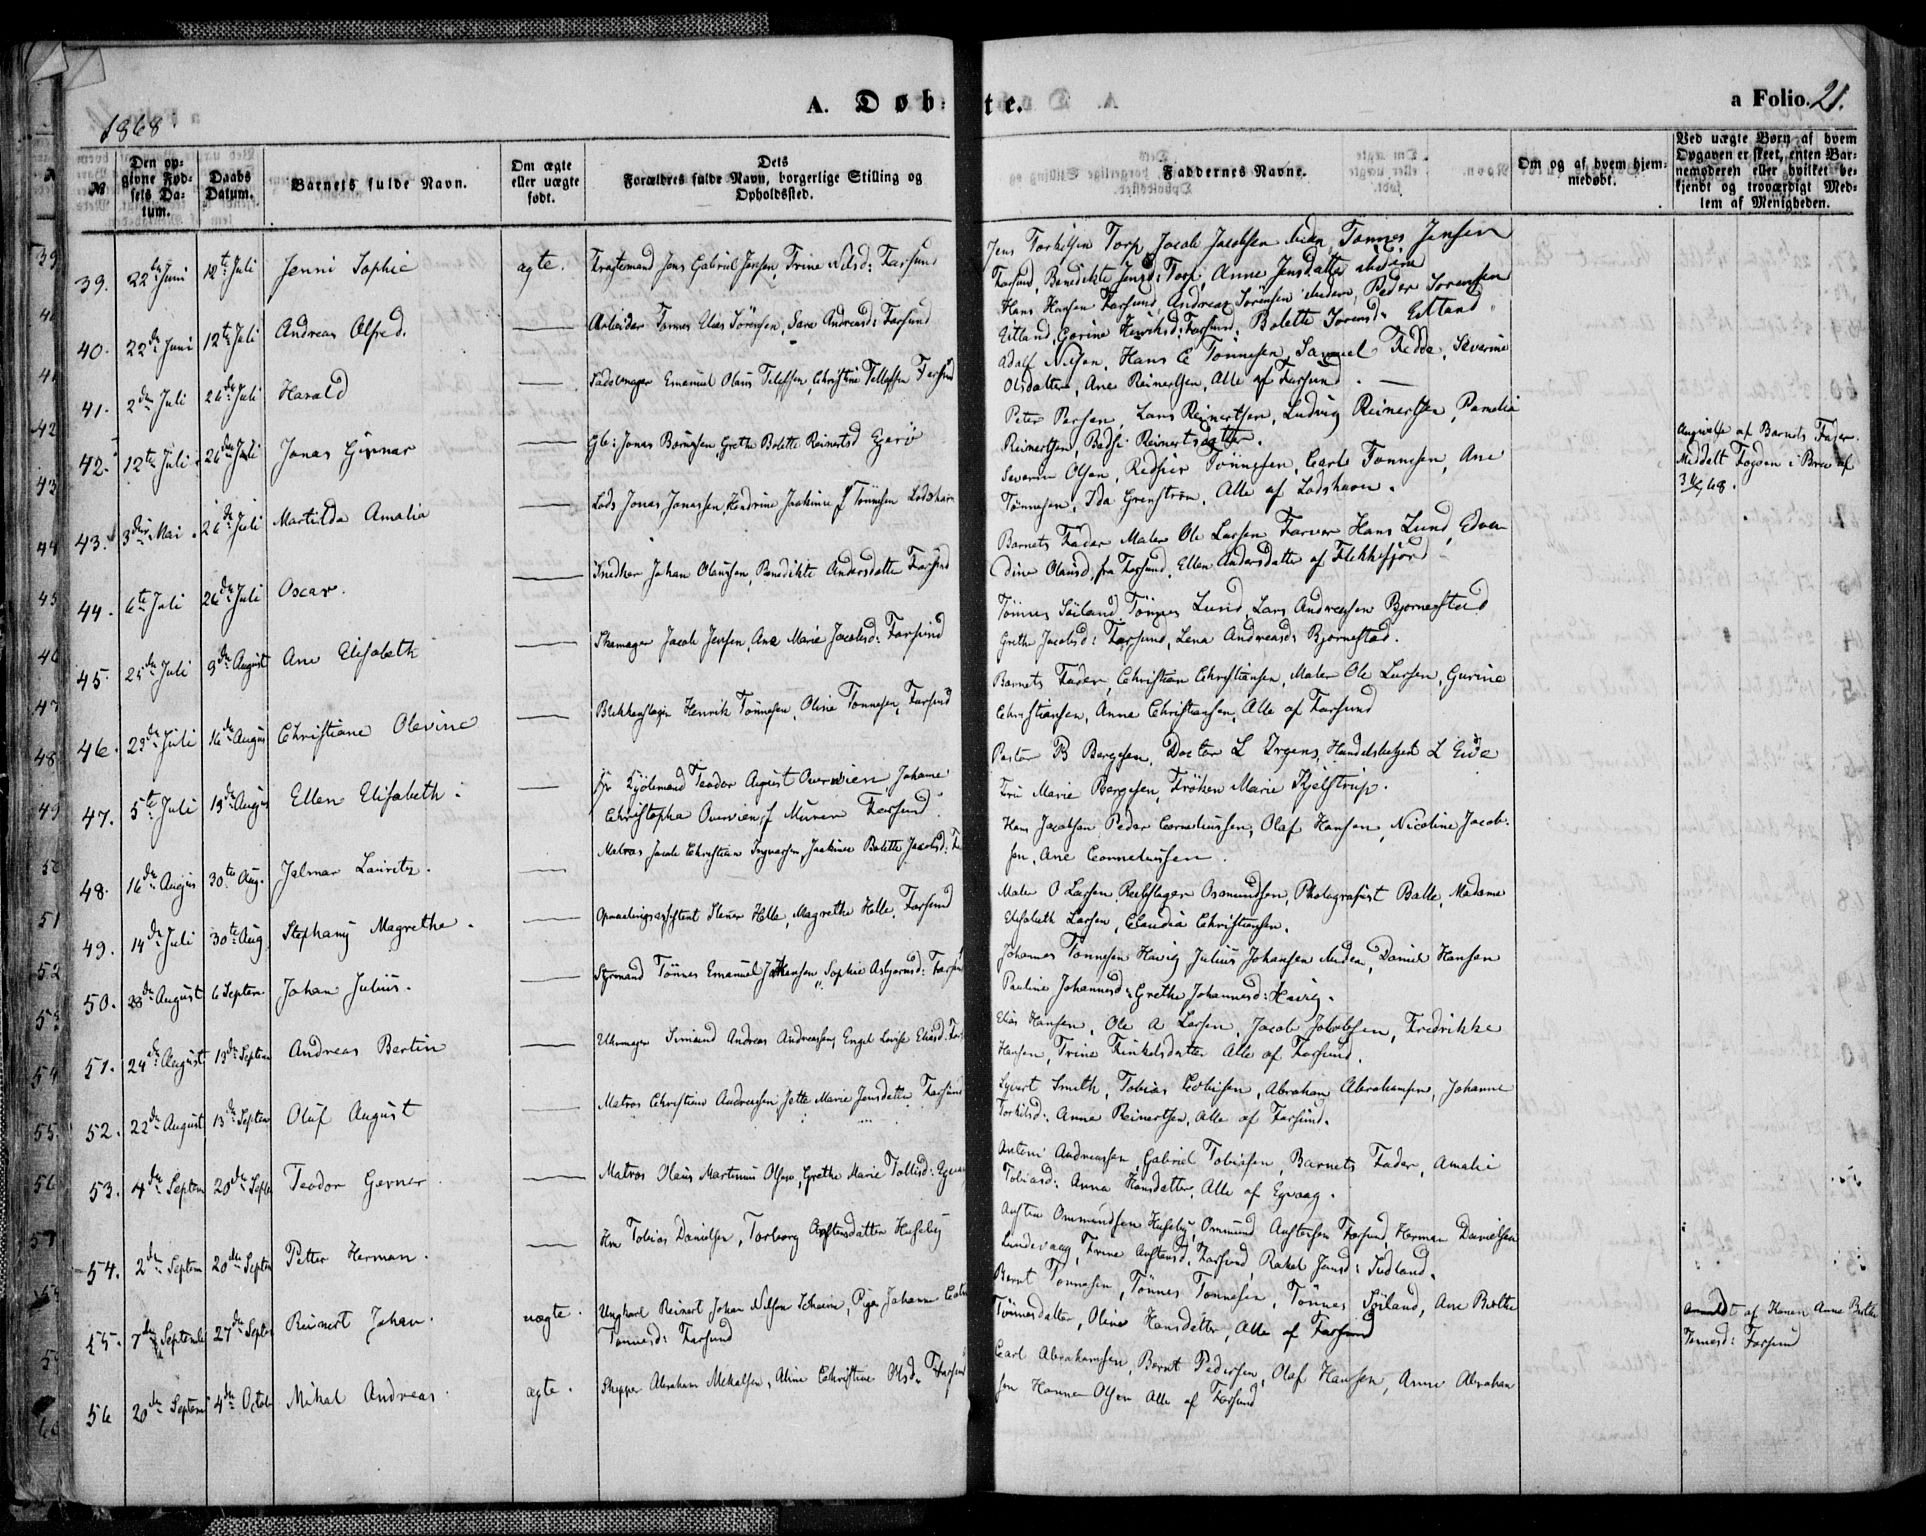 A. Døb- te.
a Folio. 21.
1868.
№
Den op-
givne Fød-
sels Da-
tum.
Daabs
Datum.
Barnets fulde Navn.
Om ægte
eller uægte
født.
Dets
Forældres fulde Navn, borgerlige Stilling og
Opholdssted.
Faddernes Navne.
Om og af hvem hjem-
medøbt.
Ved uægte Børn, af hvem
Opgaven er skeet, enten Bar-
nemoderen eller hvilket be-
kjendt og troværdigt Med-
lem af Menigheden.
39. 22de Juni 12te Juli Jenni Sophie ægte. Fragtemand Jens Gabriel Jensen, Trine Nilsd: Farsund
Jens Torkilsen Torp, Jacob Jacobsen Tønnes Jensen
Farsund, Benedikte Jensd: Torp, Anne Jensdatter ibidem
40. 22de Juni 12te Juli Andreas Alfred. — Arbeider Tønnes Elias Sörensen, Sara Andreasd: Farsund
Hans Hansen Farsund, Andreas Sörensen ibidem, Peder Sörensen
Eitland, Gurine Henriksd: Farsund, Bolette Sörensd: Eitland
41. 2den Juli 26de Juli Harald — Sadelmager Emanuel Olaus Tellefsen, Christine Tellefsen Farsund
Adolf Nilsen, Hans E Tönnesen, Samuel Fedde, Severine
Olsdatter, Ane Reinertsen, Alle af Farsund. —
42. 12te Juli 26de Juli Jonas Gunnar — Gbr: Jonas Børuesen, Grethe Bolette Reinertsd Egerö
Peter Persen, Lars Reinertsen, Ludvig Reinertsen, Pamelia
Reinertsen, Betsi Reinertsdatter.
Angivelse af Barnets Fader.
Meddelt Fogden i Brev af
43. 3die Mai 26de Juli Martilda Amalia — Lods Jonas Jonassen, Hendrine Jaakine f Tönnesen Lodshavn
Severin Olsen, Tönnesen, Carl Tönnesen, Ane
Tönnesen, Ida Grenström, Alle af Lodshavn.
44. 6te Juli 26de Juli Oscar. — Snedker Johan Olaussen, Benedikte Andersdatter Farsund
Barnets Fader Maler Ole Larsen Farver Hans Lund, Edvar
dine Olausd, fra Farsund, Ellen Andersdatter af Flekkefjord
45. 25de Juli 9de August Ane Elisabeth — Skomager Jacob Jensen, Ane Marie Jacobsd: Farsund
Tönnes Seiland, Tönnes Lund, Lars Andreassen Bjørnestad
Grethe Jacobsd: Farsund, Lena Andreasd: Bjørnestad.
46. 29de Juli 16de August Christiane Olevine — Blikkenslager Henrik Tönnesen, Oline Tönnesen, Farsund
Barnets Fader, Christian Christiansen, Maler Ole Larsen, Gurine
Christiansen, Anne Christiansen, Alle af Farsund
47. 5te Juli 19de August Ellen Elisabeth. — Teodor August Overwien, Johanne
Christopha Overwien, f Murer Farsund.
Pastor B Bergesen, Doctor L Irgens, Handelsbetjent L Eide
Fru Marie Bergesen, Frøken Marie Kjelstrup.
48. 16de August 30te Aug. Jalmar Lauritz. — Matros Jacob Christian Ingvaesen, Jaakine Bolette Jacobsd:
Hans Jacobsen Peder Corneliussen, Olaf Hansen, Nicoline Jacob-
sen, Ane Corneliussen.
49. 14de Juli 30te Aug Stephany Magrethe. — Opmaalingsassistent Stener Helle, Magrethe Helle, Farsund
Maler O Larsen Rebslager Osmundsen, Photografist Balle, Madame
Elisabeth Larsen, Claudia Christiansen.
50. 28de August 6 Septem Johan Julius. — Styrmand Tönnes Emanuel Johansen, Sophie Asbjornsd: Farsund
Johannes Tönnesen Havig Julius Johansen ibidem, Daniel Hansen
Pauline Johannesd: Grethe Johannesd: Havig.
51. 24de August 13de Septem Andreas Bertin — Uhrmager Simund Andreas Andreassen, Engel Lovise Eliasd:
Elias Hansen, Ole A Larsen, Jacob Jakobsen, Fredrikke
Hansen, Trine Finkelsdatter Alle af Farsund.
52. 22de August 13de Septem Oluf August — Matros Christian Andreassen Jette Marie Jensdatter Farsund
Syvert Smith, Tobias Tobisen, Abraham Abrahamsen, Johanne
Torkilsd: Anna Reinertsen, Alle af Farsund.
53. 4de Septem 20de Septem Teodor Gerner. — Matros Olaus Martinius Olsen, Grethe Marie Tobiasd: Egvaag
Antoni Andreassen Gabriel Tobiasen, Barnets Fader, Amalie
Tobiasd: Anna Hansdatter, Alle af Egvaag.
54. 2de Septem 20de Septem Petter Herman. — Tobias Danielsen, Torborg Austensdatter Huseby
Austen Ommundsen Huseby, Ommund Austensen Farsund, Herman Danielsen
Lundevaag, Trine Austensd. Farsund, Rakel Jansd: Indland.
55. 7de Septembr 27de Septem Reinert Johan. uægte. Ungkarl Reinert Johan Nilsen Pige Johanne
Tønnesd: Farsund
Bernt Tönnesen, Tönnes Tönnesen, Tönnes Seiland, Ane Berthe
Tönnesdatter, Oline Hansdatter, Alle af Farsund
Anmeldt af Konen Anne Berthe
Tönnesd: Farsund
56 20de Septem 4de Octob Mikal Andreas. ægte. Skipper Abraham Mikalsen, Aline Christine Olsd: Farsund
Carl Abrahamsen, Bernt Pedersen, Olaf Hansen, Anne Abraham
sen Hanne Olsen Alle af Farsund